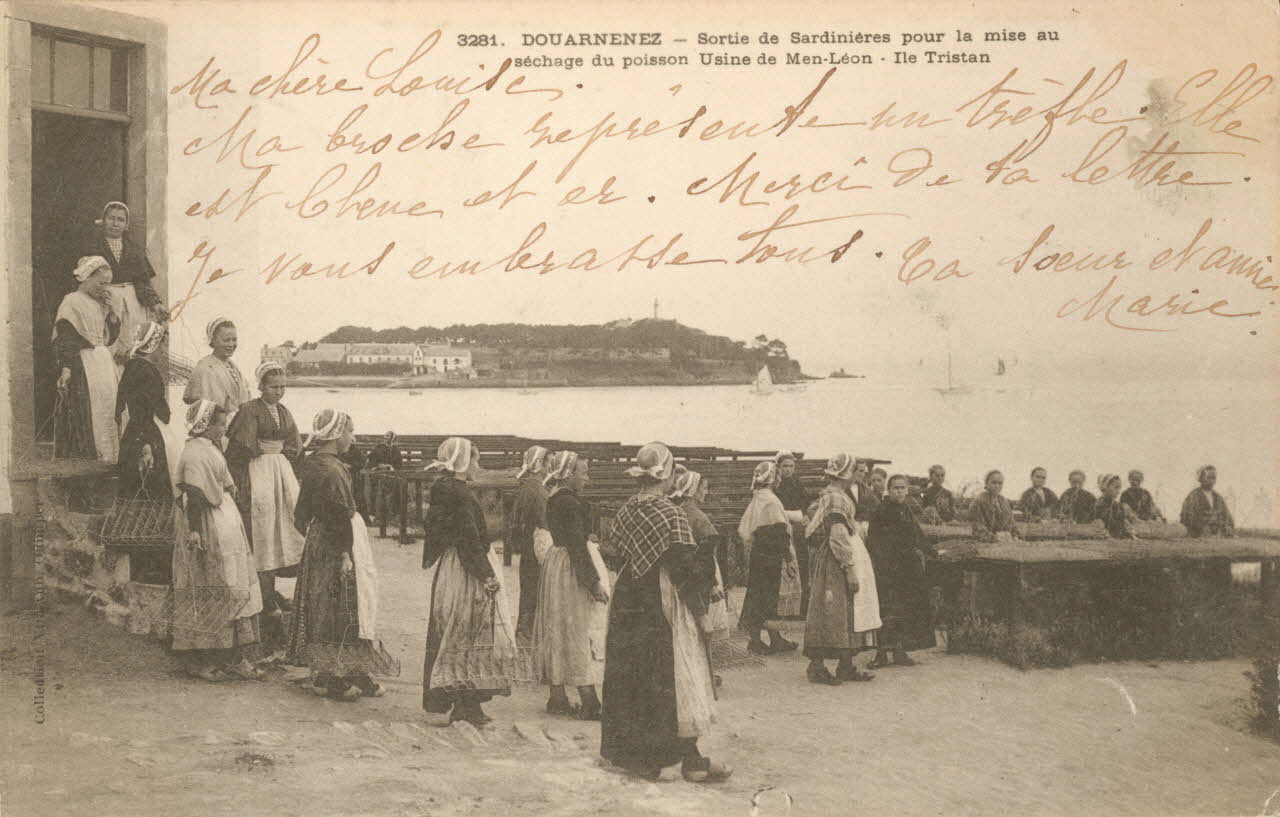 3281. DOUARNENEZ — Sortie de Sardinières pour la mise au
séchage du poisson Usine de Men-Léon - Ile Tristan
Ma chère Louise.
Ma broche représente un trèfle. Elle
est chene et or. Merci de ta lettre.
Je vous embrasse tous. Ta sœur et amie
Marie.
Collection Villard, Quimper